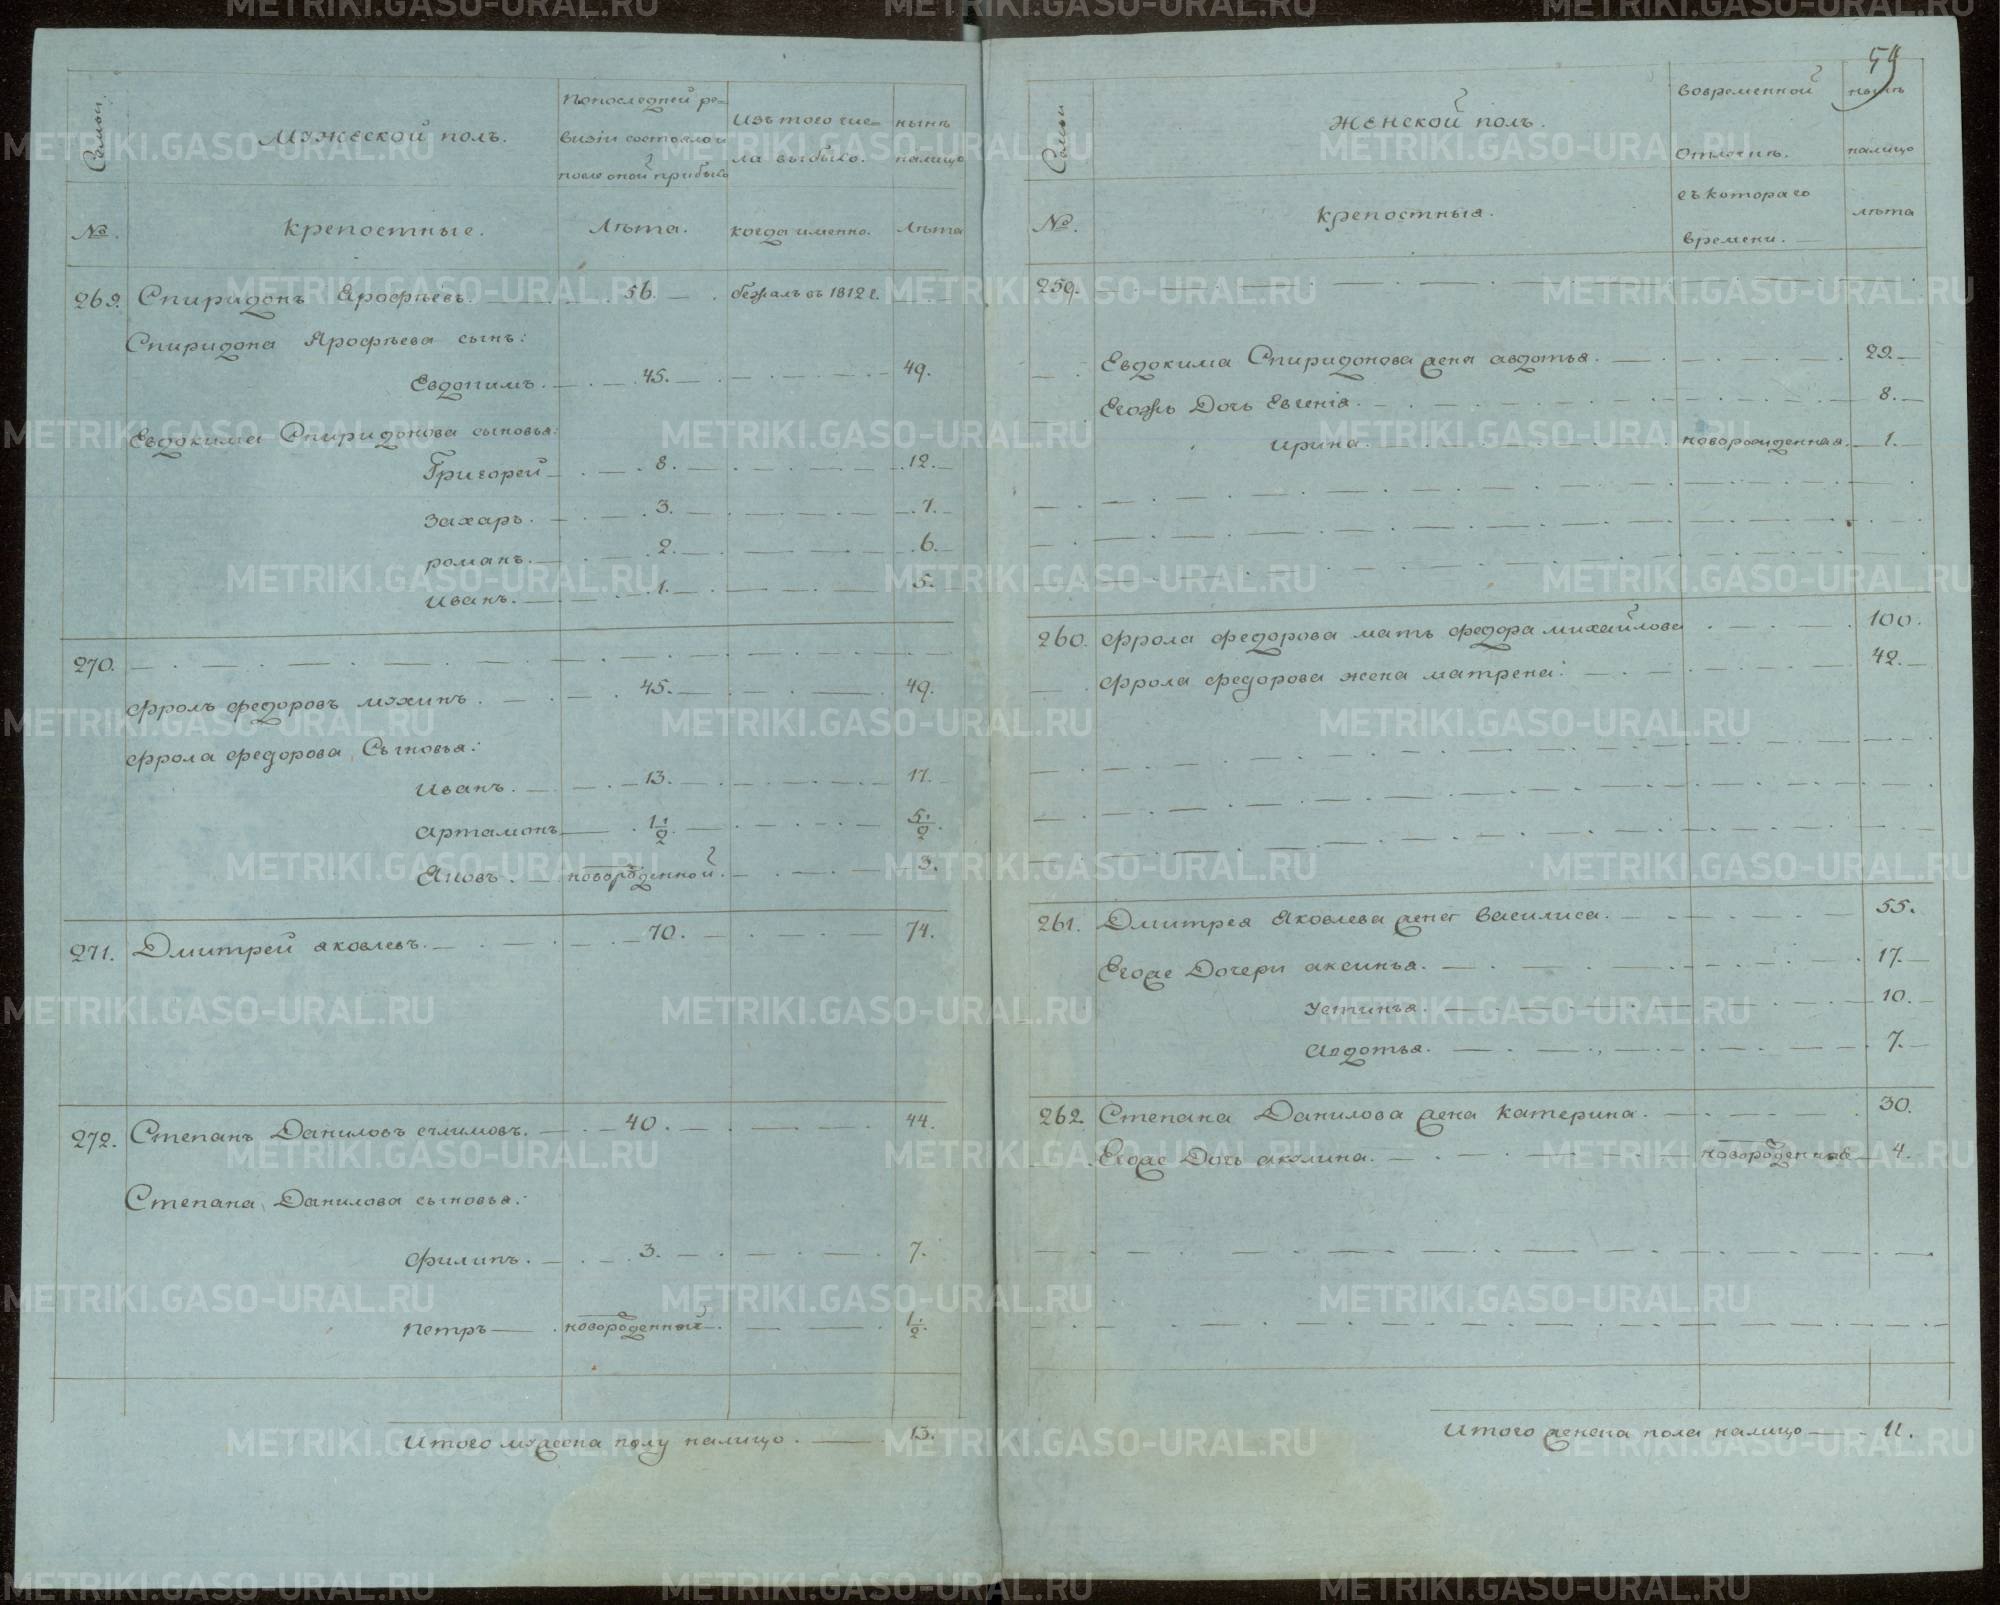 Семьи
Мужеской полъ.
Попоследней ре-
визiи состояло и
после оной прибыло
Изъ того чис-
ла выбыло.
нынѣ
налицо
№.
крепостные.
Лѣта.
когда именно.
Лѣта
269. Спиридонъ Ярофѣевъ. 56. бежалъ въ 1812 г.
Спиридона Ярофѣева сынъ:
Евдокимъ. 45. 49.
Евдокима Спиридонова сыновья:
Григорей 8. 12.
Захаръ. 3. 7.
романъ. 2. 6.
Иванъ. 1. 5.
270.
Фролъ федоровъ мухинъ. 45. 49.
Фрола федорова Сыновья:
Иванъ. 13. 17.
Артамонъ 1 1/2. 5 1/2.
Яковъ. новорожденной. 3.
271. Дмитрей яковлевъ. 70. 74.
272. Степанъ Даниловъ 40. 44.
Степана Данилова сыновья:
Филипъ. 3. 7.
Петръ новорожденный 1 1/2.
Итого мужеска полу налицо. 13.
59
Семьи
Женской полъ.
Вовременной
отлучкѣ.
нынѣ
налицо
№.
крепостныя.
съ котораго
времени.
лѣта
259.
Евдокима Спиридонова жена авдотья. 29.
Егожъ Дочь Евгенiя. 8.
Ирина. новорожденная. 1.
260. Фрола федорова мать федора михайлова 100.
Фрола федорова жена матрена: 42.
261. Дмитрея Яковлева жена Василиса. 55.
Егоже Дочери аксинья. 17.
Устинья. 10.
Авдотья. 7.
262. Степана Данилова жена катерина. 30.
Егоже Дочь акулина. новорожденная 4.
Итого женска пола налицо 11.
METRIKI.GASO-URAL.RU